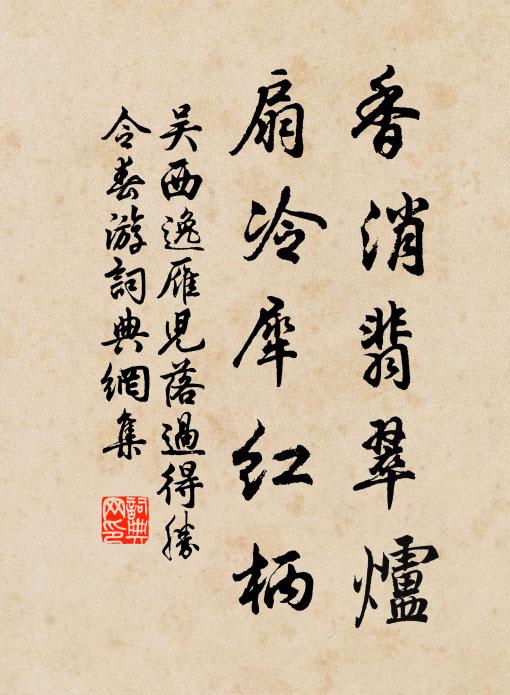 香消翡翠爐
扇冷犀紅柄
吴西逸雁児落過得勝
令春游詞典網集
詞典
网印